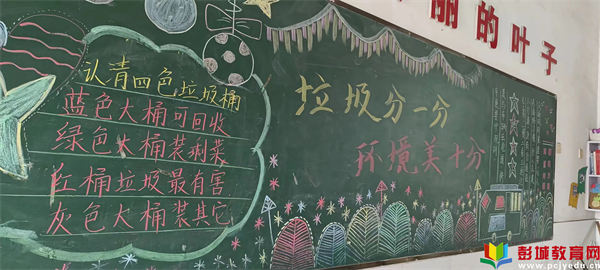 丽的叶子
认清四色垃圾桶
蓝色大桶可回收
绿色大桶装剩菜
红桶垃圾最有害
灰色大桶装其它
垃圾分一分
环境美十分
彭城教育网
www.pcjyedu.cn